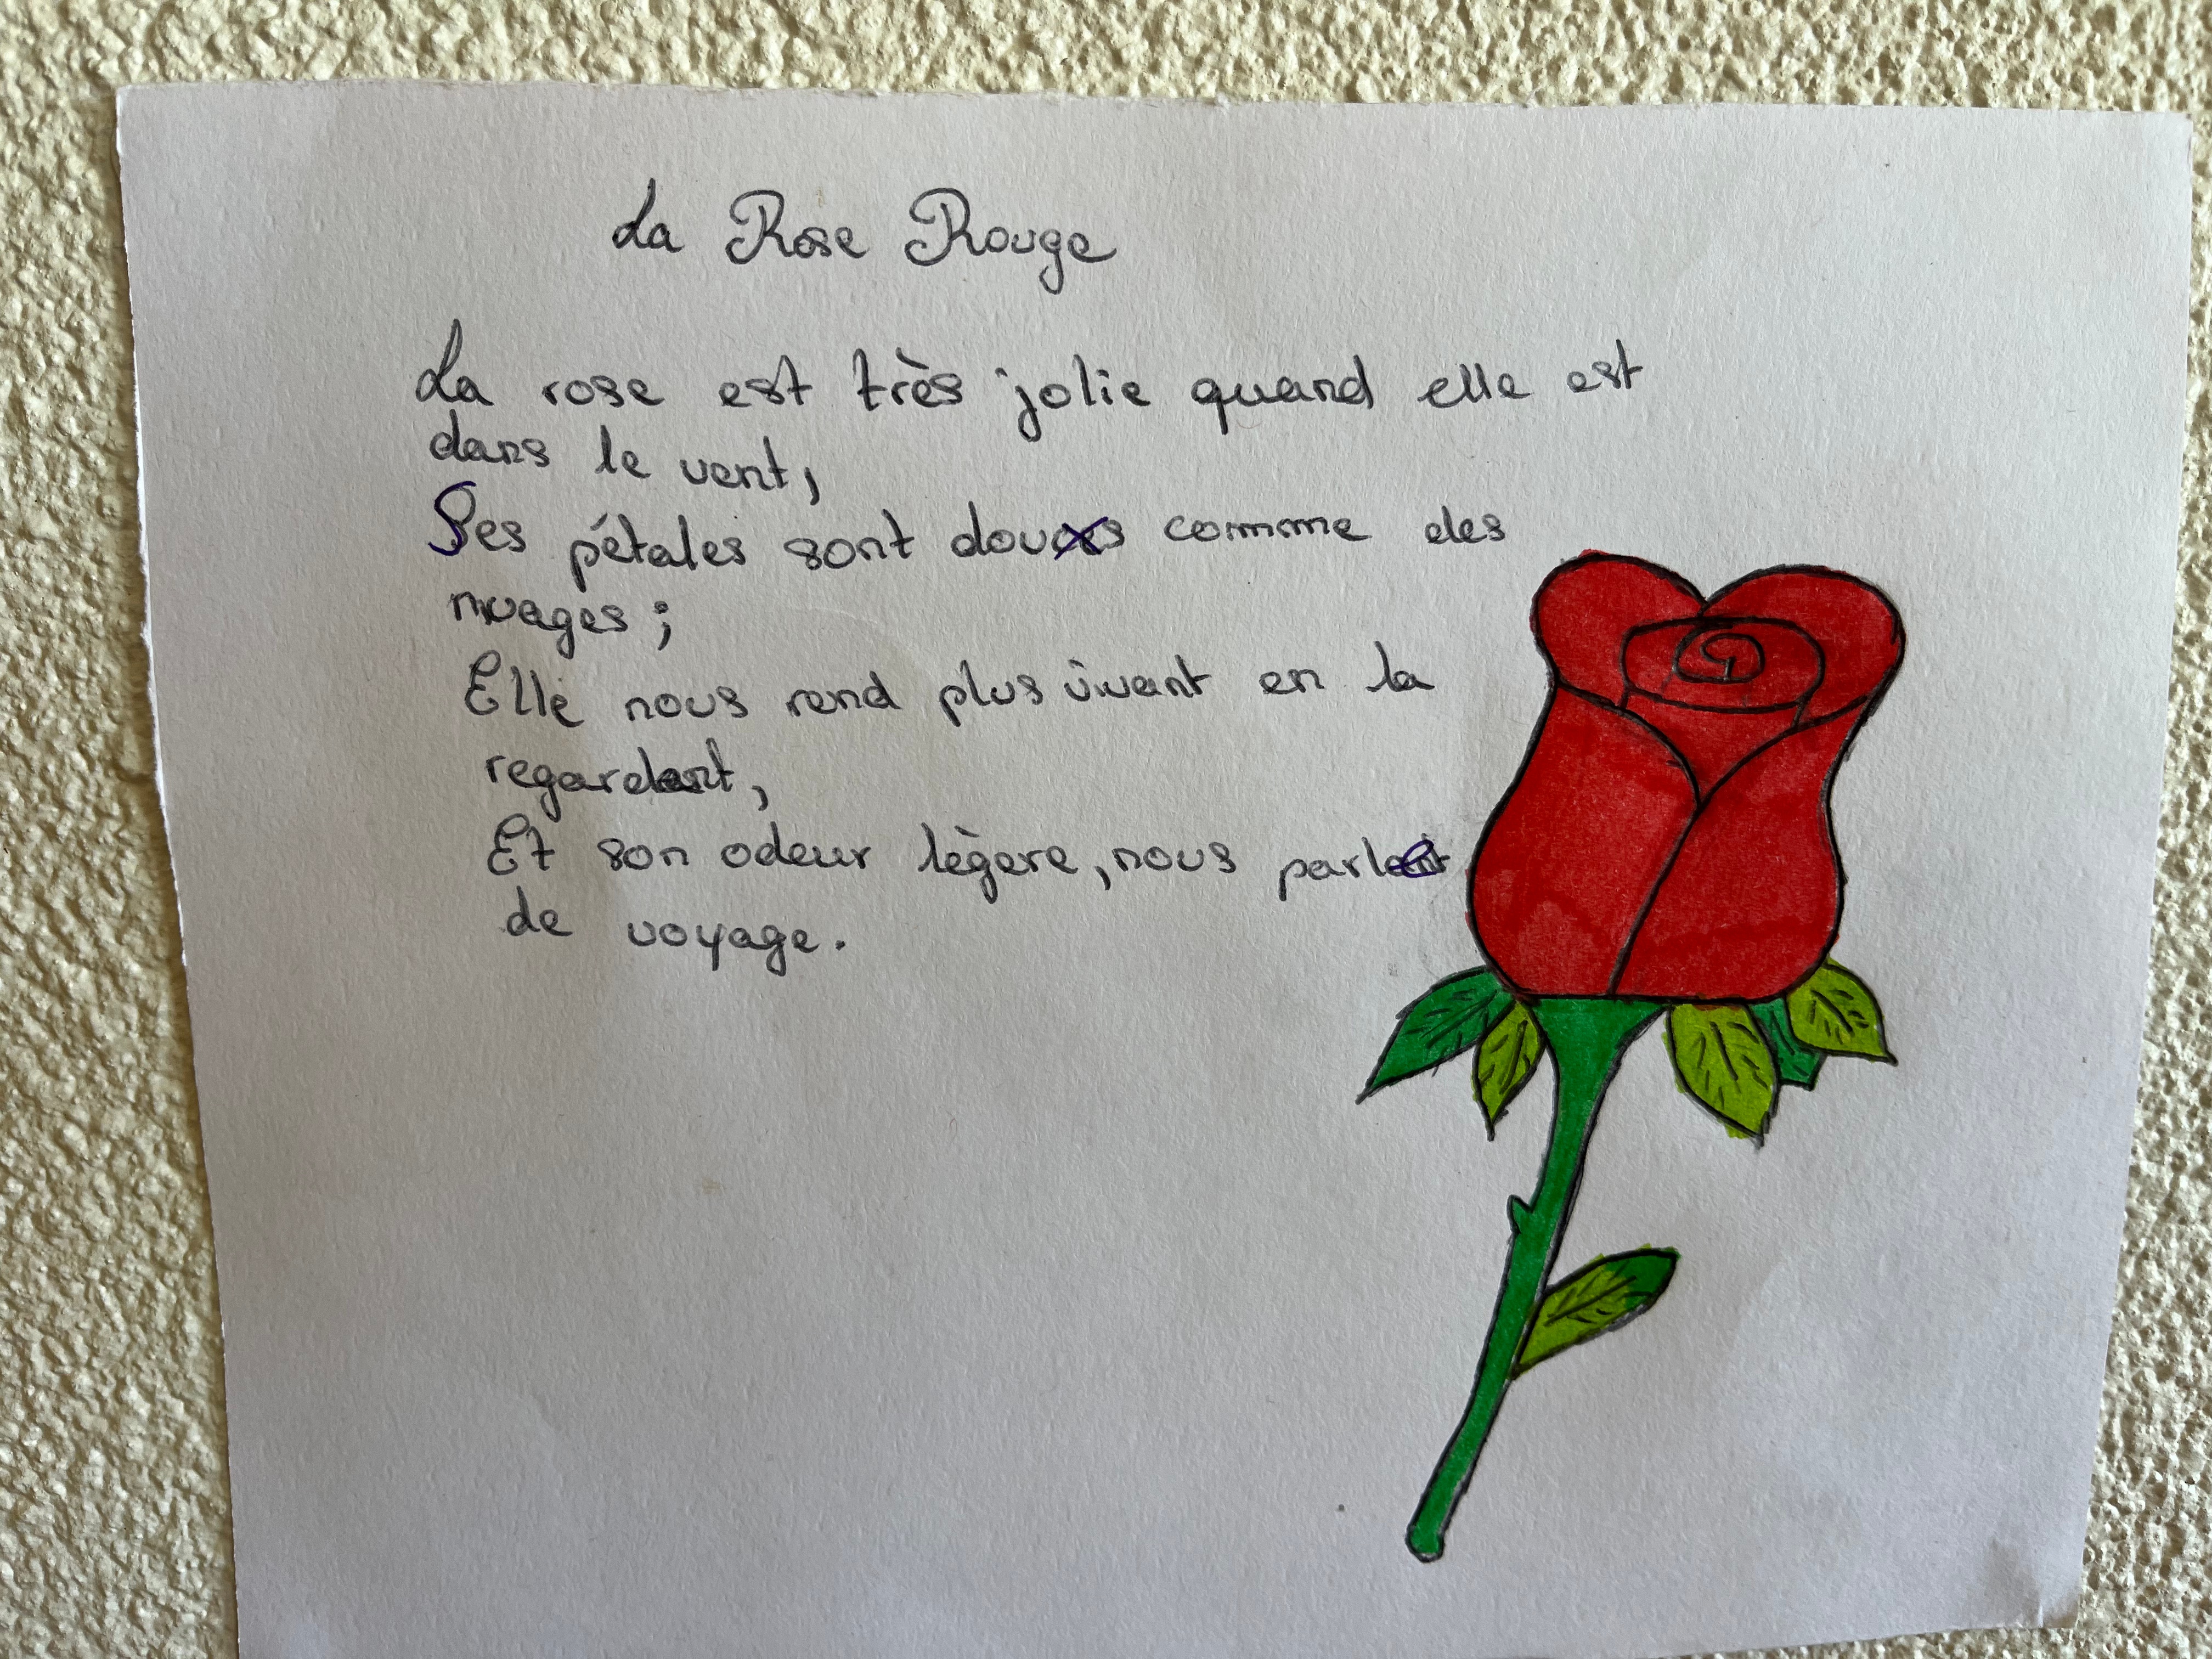 La Rose Rouge
La rose est très jolie quand elle est
dans le vent,
Ses pétales sont doux comme des
nuages ;
Elle nous rend plus vivant en la
regardant,
Et son odeur légère, nous parle
de voyage.